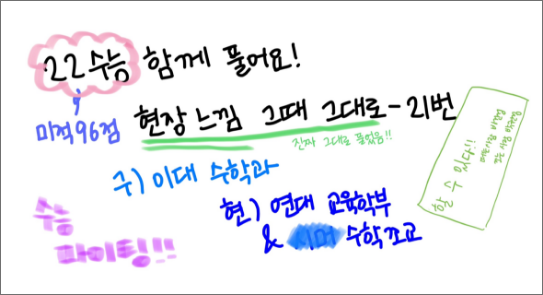 22수능 함께 풀어요!
미적96점
현장느낌 그때 그대로-21번
진짜 그대로 풀었음!!
구) 이대 수학과
현) 연대 교육학부
& 수학조교
수능
파이팅!!!
할 수 있다!!